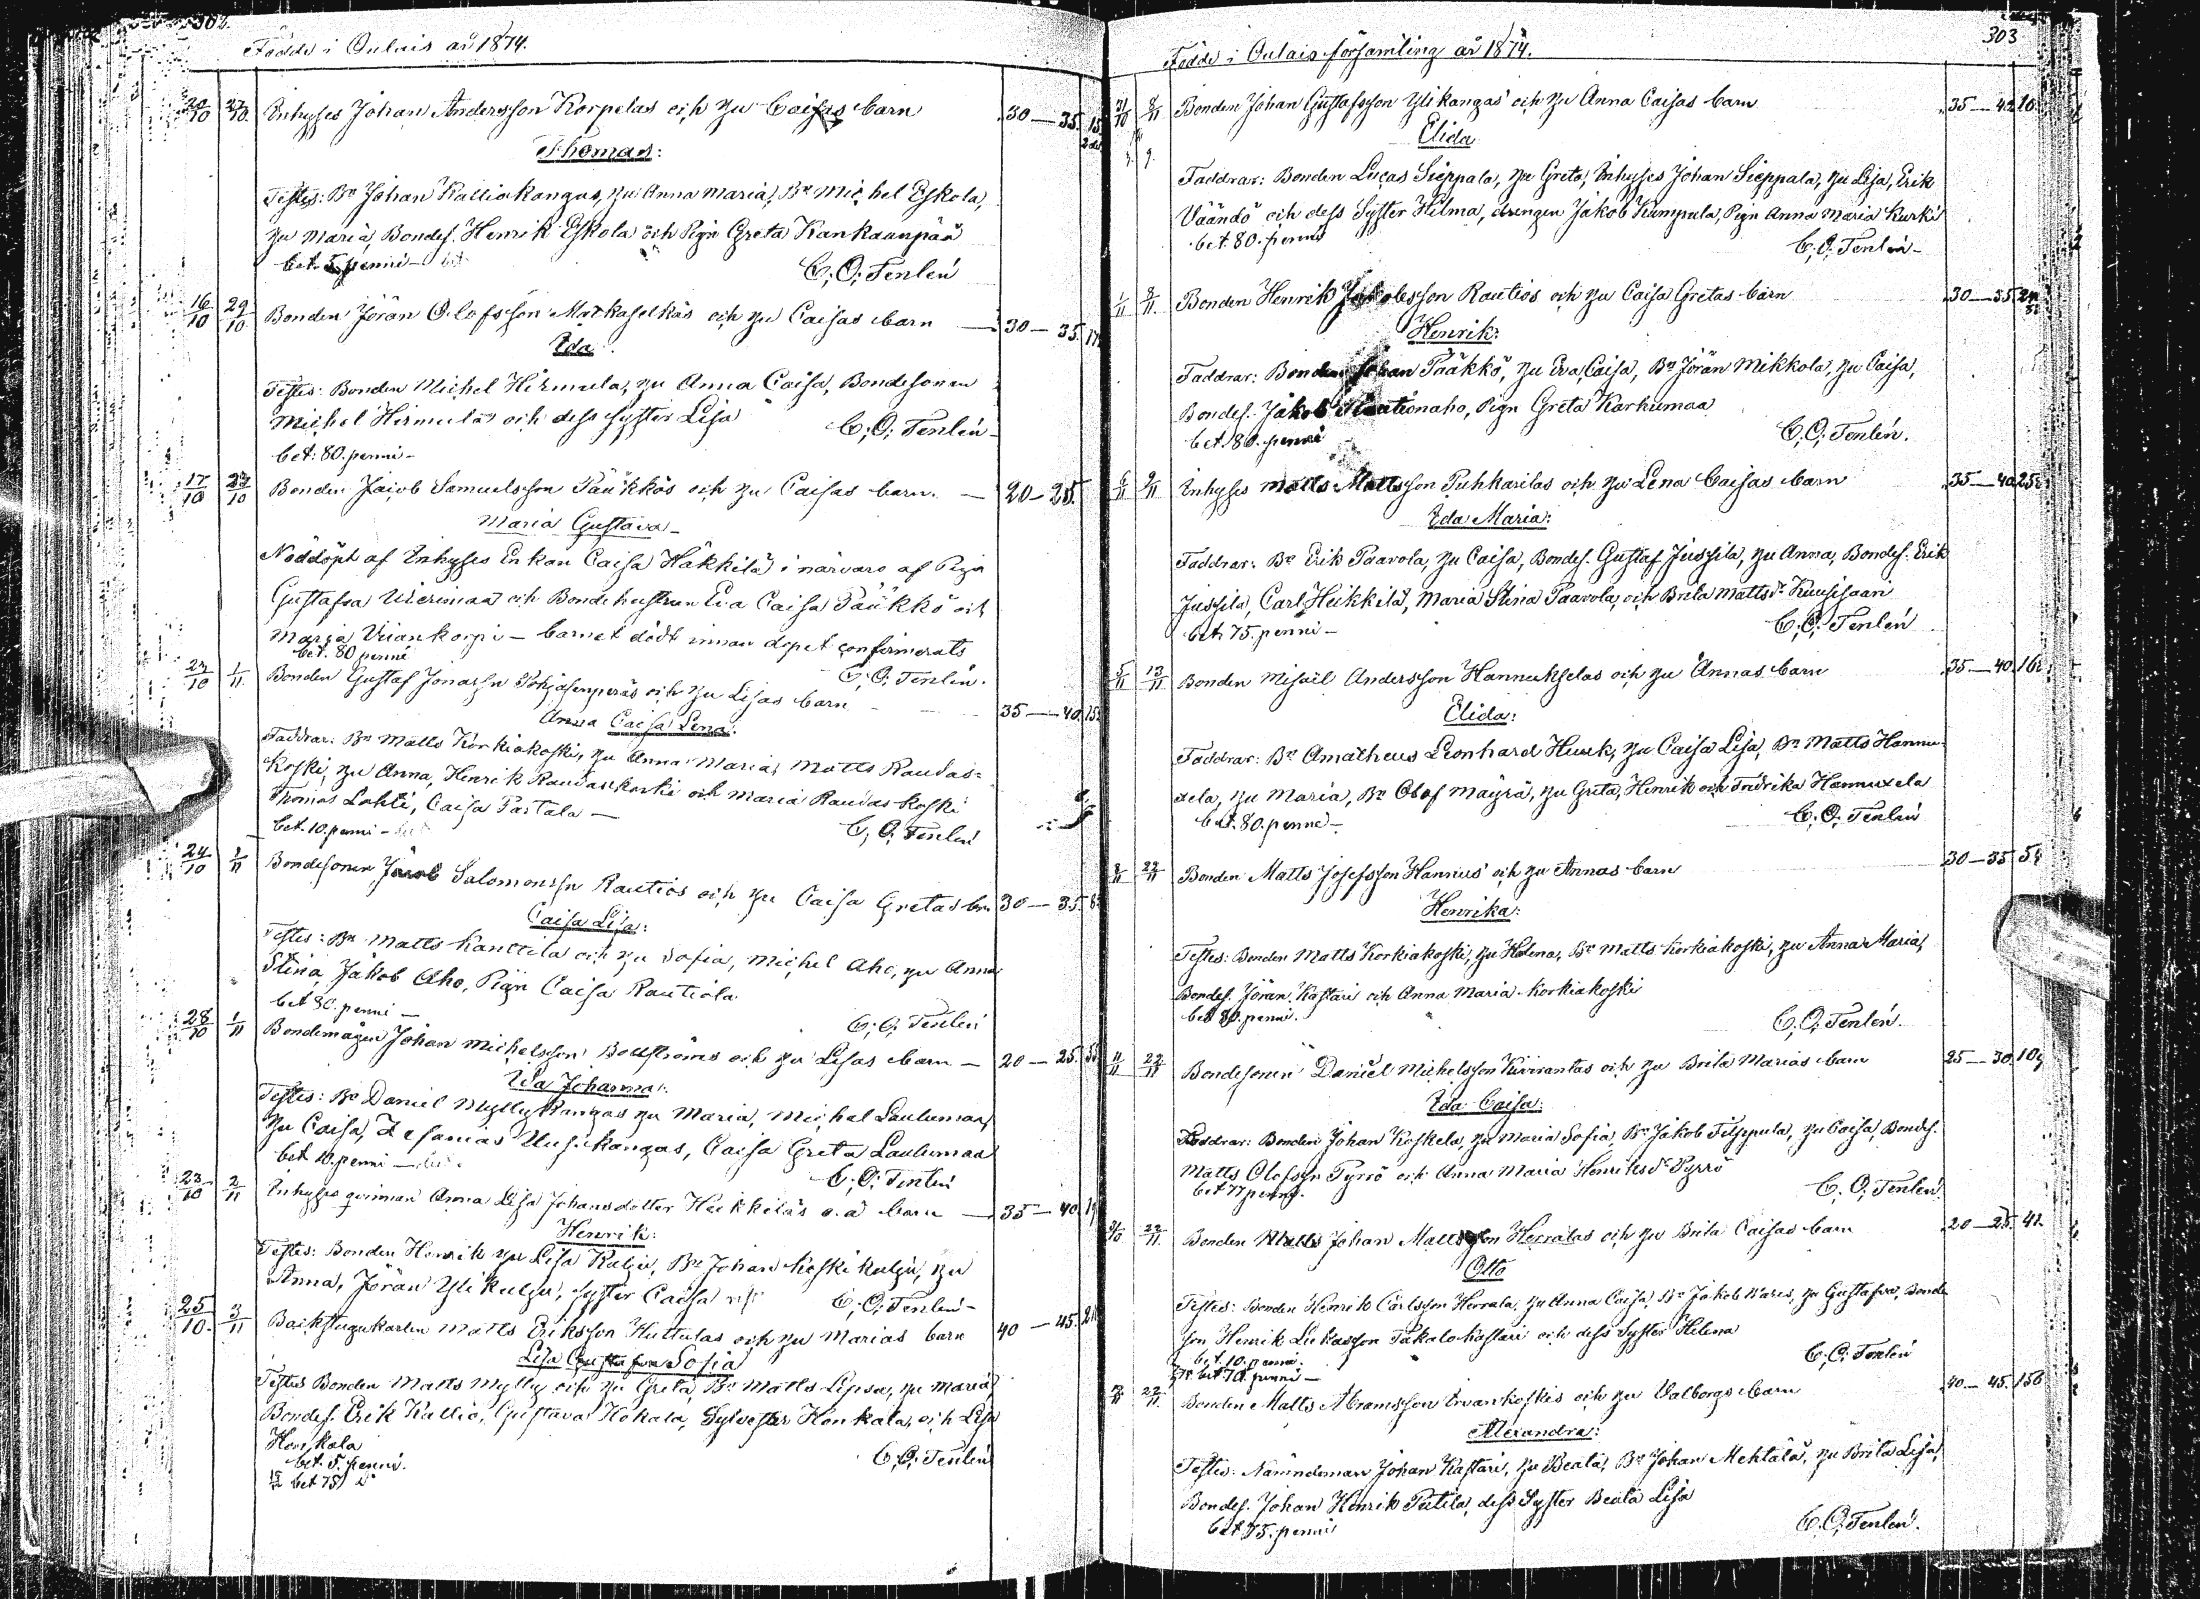 302.
Födde i Oulais år 1874.
20/10 27/10 Inhyses Johan Andersson Korpelas och hu Caisas barn 30 — 35. 15
Thomas:
Testes: Bn Johan Kalliokangas, hu Anna Maria, Bn Michel Eskola,
hu Maria, Bondes. Henrik Eskola och Pign Greta Kankaanpää
bet. 5 penni — C. O. Tenlén
16/10 29/10 Bonden Jöran Olofsson Matkaselkäs och hu Caisas barn — 30 — 35. 17
Ida.
Testes: Bonden Michel Hirmula, hu Anna Caisa, Bondesonen
Michel Hirmula och dess syster Lisa C. O. Tenlén
bet: 80. penni —
17/10 27/10 Bonden Jacob Samuelsson Pääkkös och hu Caisas barn. — 20 — 25.
Maria Gustava —
Nöddöpt af Inhyses Enkan Caisa Häkkilä i närvaro af Pign
Gustafva Vierimaa och Bondehustrun Eva Caisa Pääkkö och
Maria Viiankorpi — barnet dödt innan dopet confirmerats
bet. 80 penni C. O. Tenlén.
23/10 1/11 Bonden Gustaf Jonassn Pohjasenperäs och hu Lisas barn 35 — 40. 15
Anna Caisa Lena.
Faddrar: Bn Matts Korkiakoski, hu Anna Maria, Matts Raudas-
koski, hu Anna, Henrik Raudaskoski och Maria Raudaskoski
Thomas Lahti, Caisa Pastala —
bet. 10. penni — C. O. Tenlén
24/10 1/11 Bondesonen Jacob Salomonssn Rautios och hu Caisa Gretas brn 30 — 35.
Caisa Lisa:
Testes: Bn Matts Kanttila och hu Sofia, Michel Aho, hu Anna
Stina, Jakob Aho, Pign Caisa Rautiola
bet 80. penni — C. O. Tenlén
28/10 1/11 Bondemågen Johan Michelsson Boströms och hu Lisas barn — 20 — 25.
Ida Johanna:
Testes: Bn Daniel Myllykangas hu Maria, Michel Laulumaa,
hu Caisa, Zefanias Uusikangas, Caisa Greta Laulumaa
bet 10. penni — C. O. Tenlén
23/10 2/11 Inhyses qvinnan Anna Lisa Johansdotter Heikkiläs o.ä barn — 35 — 40
Henrik:
Testes: Bonden Henrik hu Lisa Kulju, Bn Johan Koskikulju, hu
Anna, Jöran Ylikulju, syster Caisa C. O. Tenlén —
25/10 3/11 Backstugukarlen Matts Eriksson Huttulas och hu Marias barn 40 — 45. 21
Lisa Gustafva Sofia
Testes Bonden Matts Mylly och hu Greta, Bn Matts Lipsa, hu Maria
Bondes. Erik Kallio, Gustava Kokala, Sylvester Honkala, och Lisa
Honkala
bet. 5. penni. C. O. Tenlén
bet 75
303
Födde i Oulais församling år 1874.
31/10 8/11 Bonden Johan Gustafsson Ylikangas och hu Anna Caisas barn 35 — 42
Elida
Faddrar: Bonden Lucas Sieppala, hu Greta, Inhyses Johan Sieppala, hu Lisa, Erik
Väändö och dess Syster Hilma, drengen Jakob Kumpula, Pign Anna Maria Kurki
bet. 80. penni C. O. Tenlén —
1/11 8/11 Bonden Henrik Jakobsson Rautios och hu Caisa Gretas barn 30 — 35
Henrik:
Faddrar: Bonden Johan Pääkkö, hu Eva Caisa, Bn Jöran Mikkola, hu Caisa,
Bondes. Jakob Rautionaho, Pign Greta Karhumaa
bet. 80. penni C. O. Tenlén.
6/11 9/11 Inhyses Matts Mattsson Puhkarilas och hu Lena Caisas barn 35 — 40
Ida Maria:
Faddrar: Bn Erik Paavola, hu Caisa, Bondes. Gustaf Jussila, hu Anna, Bondes. Erik
Jussila, Carl Heikkilä, Maria Stina Paavola, och Brita Mattsdr Kuusisaari
bet. 75. penni — C. O. Tenlén
5/11 13/11 Bonden Misael Andersson Hannukselas och hu Annas barn 35 — 40.
Elida:
Faddrar: Bn Amatheus Leonhard Husek, hu Caisa Lisa, Bn Matts Hannu-
xela, hu Maria, Bn Olof Mäyrä, hu Greta, Henrik och Fredrika Hannuxela
bet. 80. penni — C. O. Tenlén
8/11 22/11 Bonden Matts Josefsson Hannus och hu Annas barn 30 — 35
Henrika:
Testes: Bonden Matts Korkiakoski, hu Helena, Bn Matts Korkiakoski, hu Anna Maria,
Bondes. Jöran Kastari och Anna Maria Korkiakoski
bet 80. penni. C. O. Tenlén.
11/11 22/11 Bondesonen Daniel Michelsson Kivirantas och hu Brita Marias barn 25 — 30
Ida Caisa:
Faddrar: Bonden Johan Koskela, hu Maria Sofia, Bn Jakob Filppula, hu Caisa, Bondes.
Matts Olofssn Pyrrö och Anna Maria Henriksdr Pyrrö
bet 77 penni. C. O. Tenlén
22/11 Bonden Matts Johan Mattsson Herralas och hu Brita Caisas barn 20 — 25. 41.
Otto
Testes: Bonden Henrik Carlsson Herrala, hu Anna Caisa, Bn Jakob Kares, hu Gustafva, Bonde
son Henrik Lukasson Takalokastari och dess Syster Helena
bet. 10. penni. C. O. Tenlén
bet 70. penni —
22/11 Bonden Matts Abramsson Irvankoskis och hu Valborgs barn 40 — 45.
Alexandra:
Testes: Nämndeman Johan Kastari, hu Beata, Bn Johan Mehtälä, hu Brita Lisa,
Bondes. Johan Henrik Putila, dess Syster Beata Lisa
bet 75. penni C. O. Tenlén.